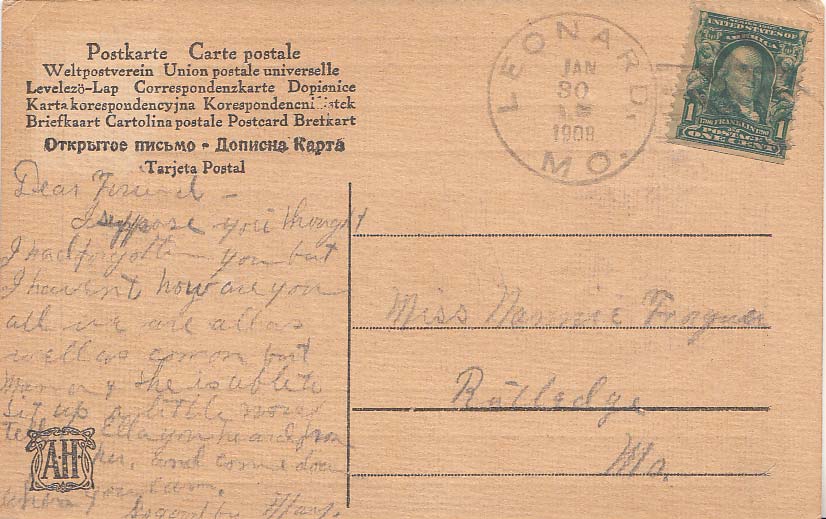 Postkarte Carte postale
Weltpostverein Union postale universelle
Levelező-Lap Correspondenzkarte Dopisnice
Karta korespondencyjna Korespondencni listek
Briefkaart Cartolina postale Postcard Bretkart
Открытое письмо - Дописна Карта
Tarjeta Postal
LEONARD, MO.
JAN
30
1908
UNITED STATES OF
AMERICA
1 FRANKLIN 1
POSTAGE
ONE CENT
Dear Friend -
I suppose you thought
I had forgotten you but
I havent how are you
all we are all as
well as comon but
she is able to
sit up a little now
Ella you heard from
her, and come down
when you can.
good by Mary.
A.H
Miss Nannie
Rutledge
Mo.